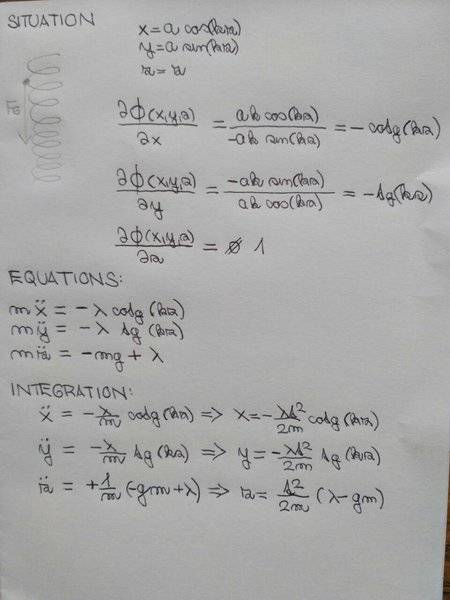 SITUATION
x = a cos(kz)
y = a sin(kz)
z = z
F_G
∂ϕ(x,y,z)/∂x = ak cos(kz)/-ak sin(kz) = - cotg(kz)
∂ϕ(x,y,z)/∂y = -ak sin(kz)/ak cos(kz) = - tg(kz)
∂ϕ(x,y,z)/∂z = 1
EQUATIONS:
mẍ = -λ cotg(kz)
mÿ = -λ tg(kz)
mz̈ = -mg + λ
INTEGRATION:
ẍ = -λ/m cotg(kz) => x = -λt²/2m cotg(kz)
ÿ = -λ/m tg(kz) => y = -λt²/2m tg(kz)
z̈ = +1/m (-gm+λ) => z = t²/2m (λ-gm)